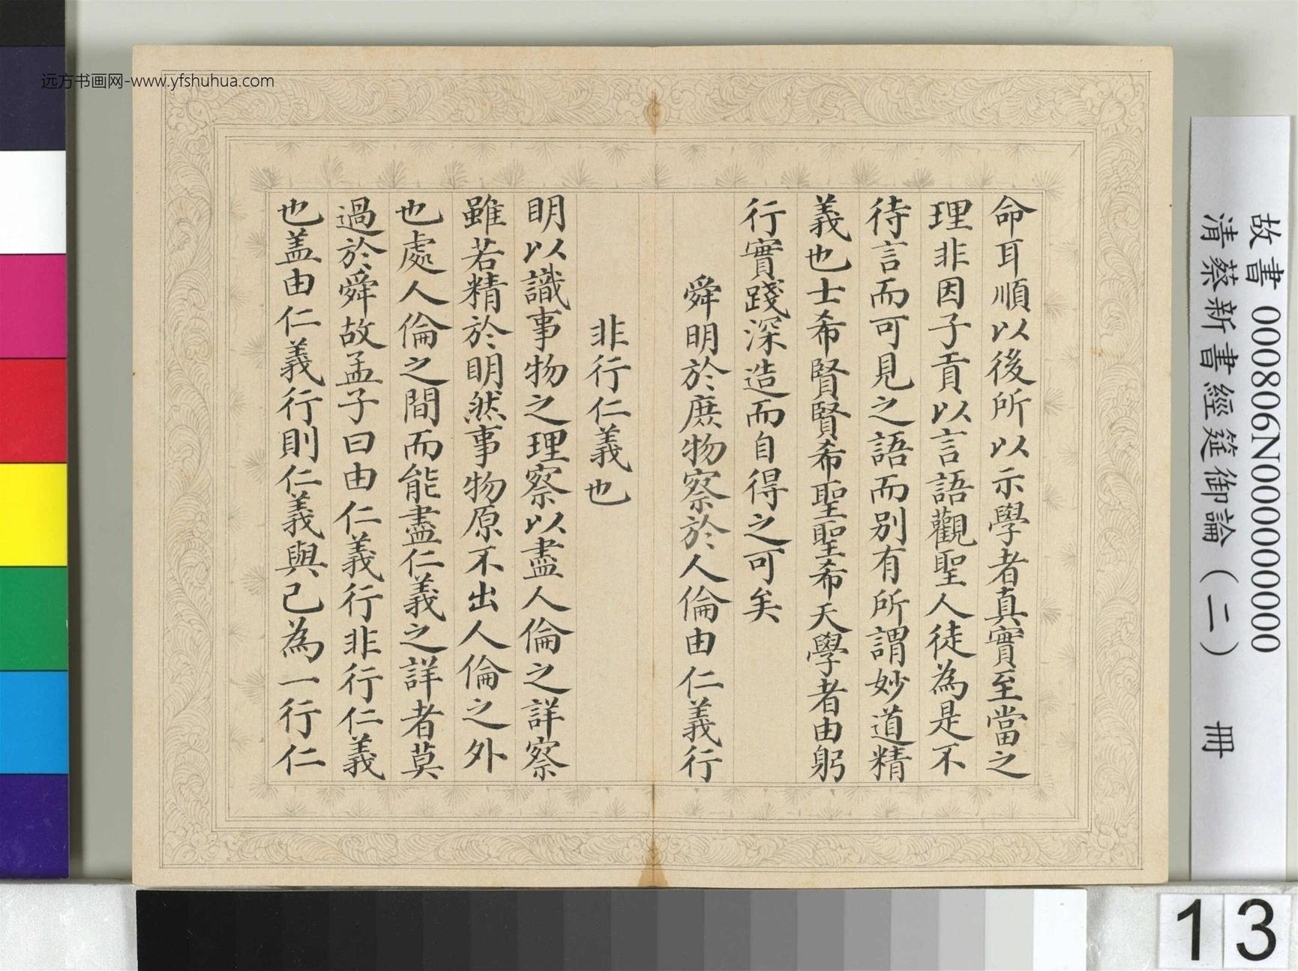 远方书画网-www.yfshuhua.com
命耳順以後所以示學者真實至當之
理非因子貢以言語觀聖人徒為是不
待言而可見之語而别有所謂妙道精
義也士希賢賢希聖聖希天學者由躬
行實踐深造而自得之可矣
舜明於庶物察於人倫由仁義行
非行仁義也
明以識事物之理察以盡人倫之詳察
雖若精於明然事物原不出人倫之外
也處人倫之間而能盡仁義之詳者莫
過於舜故孟子曰由仁義行非行仁義
也盖由仁義行則仁義與己為一行仁
故書 000806N000000000
清蔡新書經筵御論（二） 冊
13